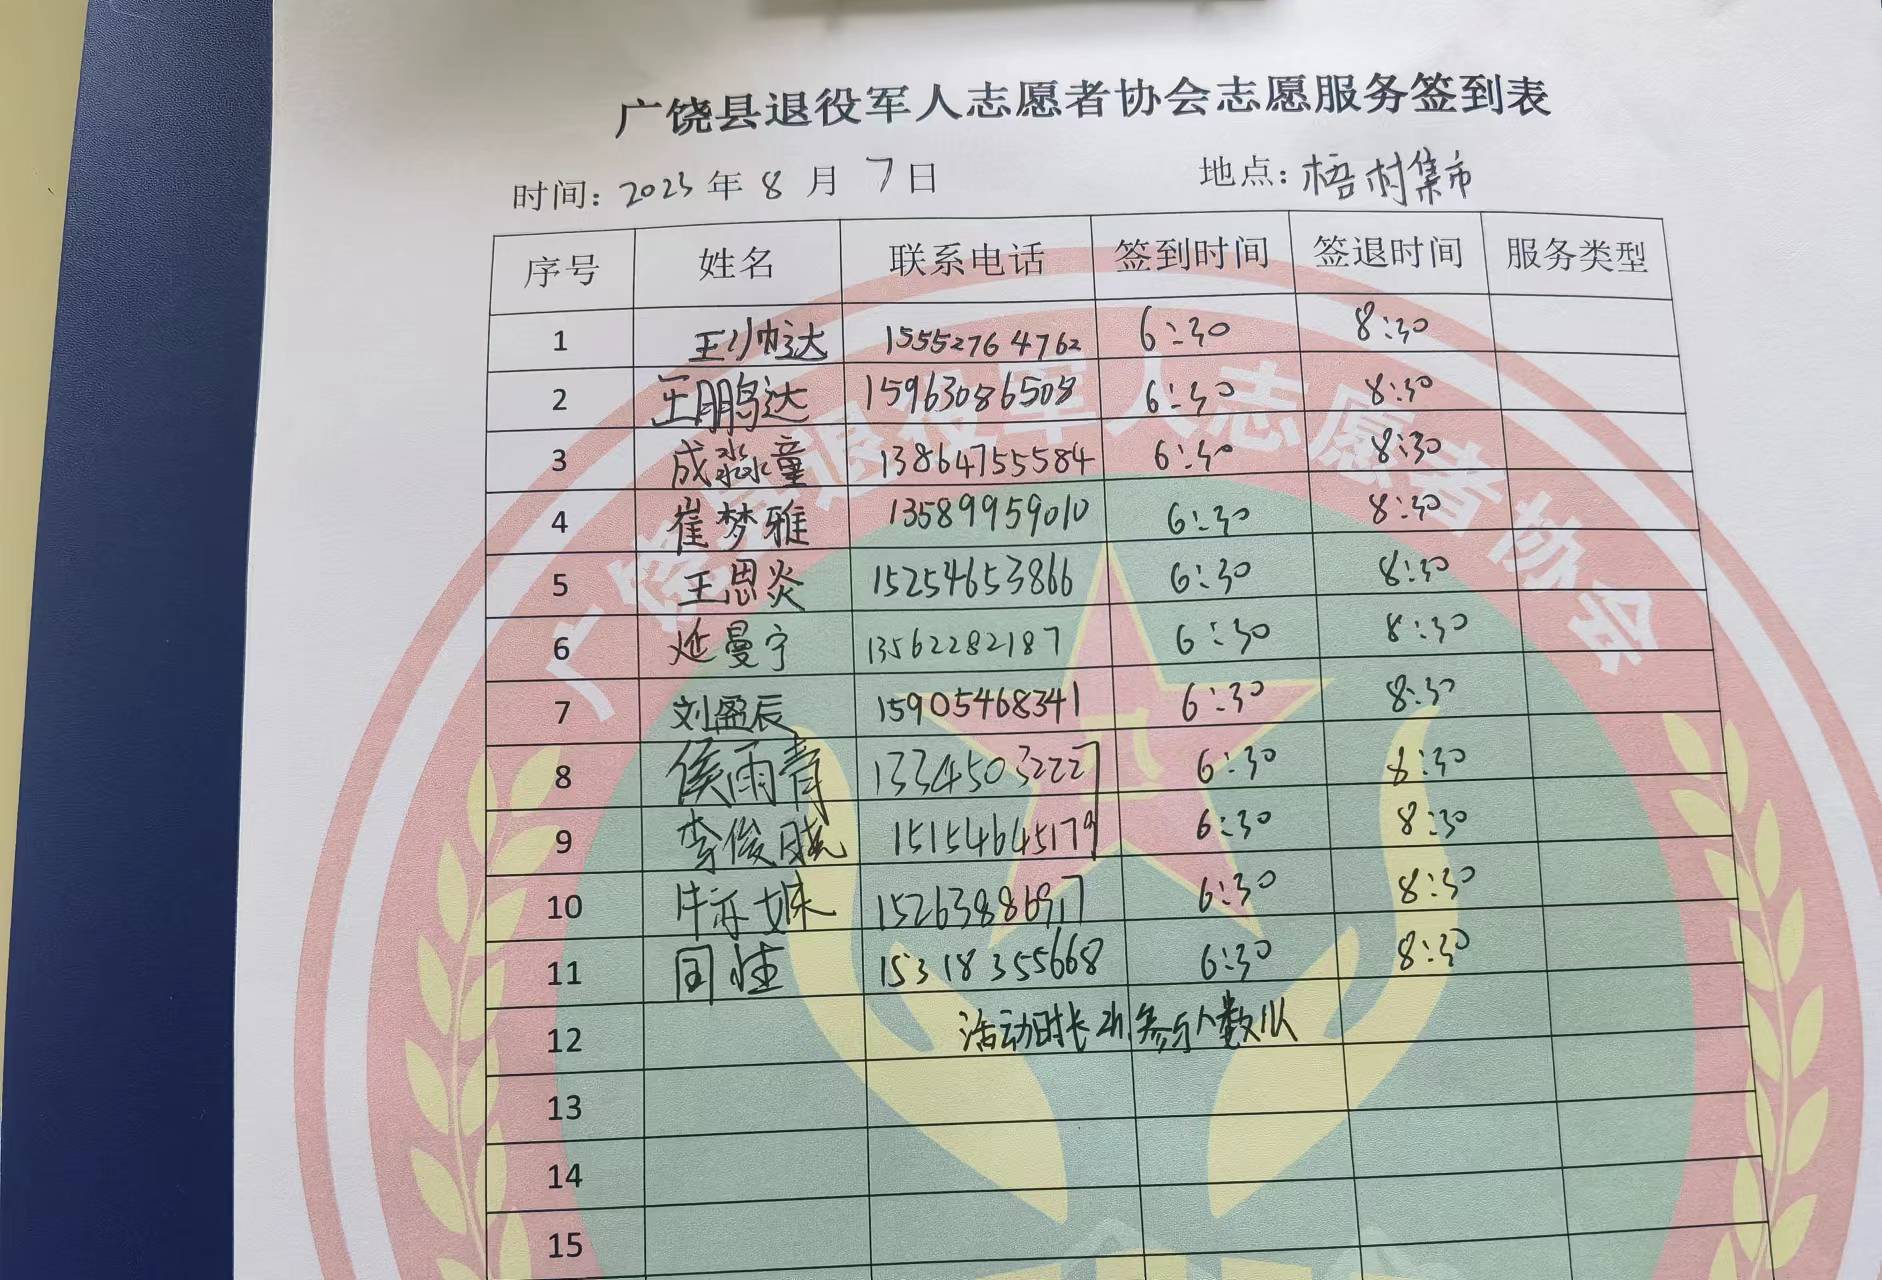 广饶县退役军人志愿者协会志愿服务签到表
时间: 2025 年 8 月 7 日 地点: 梧村集市
序号 姓名 联系电话 签到时间 签退时间 服务类型
1 王小帅达 15552764762 6:30 8:30
2 王鹏达 15963086508 6:30 8:30
3 成淼童 13864755584 6:30 8:30
4 崔梦雅 13589959010 6:30 8:30
5 王恩炎 15254653866 6:30 8:30
6 延曼宁 13562282187 6:30 8:30
7 刘盈辰 15905468341 6:30 8:30
8 侯雨青 13345032227 6:30 8:30
9 李俊晓 15154645179 6:30 8:30
10 牛亦姝 15263886917 6:30 8:30
11 15318355668 6:30 8:30
12 活动时长2h 参与人数11人
13
14
15
广饶县退役军人志愿者协会